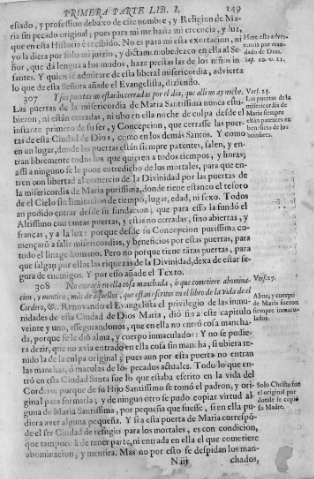 PRIMERA PARTE LIB. I. 249
esado, y professo debaxo de este nombre, y Religion de Ma-
ria sin pecado original; pues para mi me basta mi exercicio, y luz,
que en esta Historia è recibido. No es para mi esta excitacion, ni
yo la diera por solo mi juizio, y dictamen: obedezco en ella al Se-
ñor, que dà lengua a los mudos, haze
fantes. Y quien se admirare de esta liberal misericordia, advierta
lo que de esta Señora añade el Evangelista, diziendo.
307 Y sus puertas no estàn cerradas por el dia, que alli no ay noche.
Las puertas de la misericordia de Maria Santissima nunca estu-
bieron, ni estàn cerradas, ni ubo en ella noche de culpa desde el
instante primero de su ser, y Concepcion, que cerrasse las puer-
tas de esta Ciudad de Dios, como en los demàs Santos. Y como
en donde las puertas estàn siempre patentes, salen, y en-
tran libremente todos los que quieren a todos tiempos, y horas;
assi a ninguno se le pone entredicho de los mortales, para que en-
tren con libertad al comercio de la Divinidad por las puertas de
la misericordia de Maria purissima, donde tiene estanco el tesoro
de el Cielo sin limitacion de tiempo, lugar, edad, ni sexo. Todos
an podido entrar desde su fundacion; que para esso la fundò el
Altissimo con tantas puertas, y estas no cerradas, sino abiertas, y
francas, y a la luz: porque desde su Concepcion purissima co-
mençarõ a salir misericordias, y beneficios por estas puertas, para
todo el linage humano. Pero no porque tiene tantas puertas, para
que salgan por ellas las riquezas de la Divinidad, dexa de estar se-
gura de enemigos. Y por esso añade el Texto.
308 No entrarà en ella cosa manchada, ò que comiere abomina-
cion, y mentira, mas de aquellos, que estàn escritos en el libro de la vida de el
Cordero, &c. Renovando el Evangelista el privilegio de las inmu-
nidades de esta Ciudad de Dios Maria, diò fin a este capitulo
veinte y uno, assegurandonos, que en ella no entrò cosa mancha-
da, porque se le diò alma, y cuerpo inmaculados: Y no se pudie-
ra dezir, que no avia entrado en ella cosa sin mancha, si ubiera te-
nido la de la culpa original; pues aun por esta puerta no entran
las manchas, ò maculas de los pecados actuales. Todo lo que en-
trò en esta Ciudad Santa fue lo que estaba escrito en la vida del
Cordero, porque de su Hijo Santissimo se tomò el padron, y ori-
ginal para formarla; y de ninguno otro se pudo copiar virtud al-
guna de Maria Santissima, por pequeña que fuesse, si en ella pu-
diera aver alguna pequeña. Y si a esta puerta de Maria correspõ-
de el ser Ciudad de refugio para los mortales, es con condicion,
que tampoco à de tener parte, ni entrada en ella el que cometiere
abominacion, y mentira. Mas no por esto se despidan los man-
N iij chados,
Vers. 25.
Las puertas de la
misericordia de
Maria siempre
estàn patentes
Vers. 27.
Alma, y cuerpo
de Maria fueron
siempre inmacu-
lados.
Solo Christo fue
el original por
donde se copiò
su Madre.